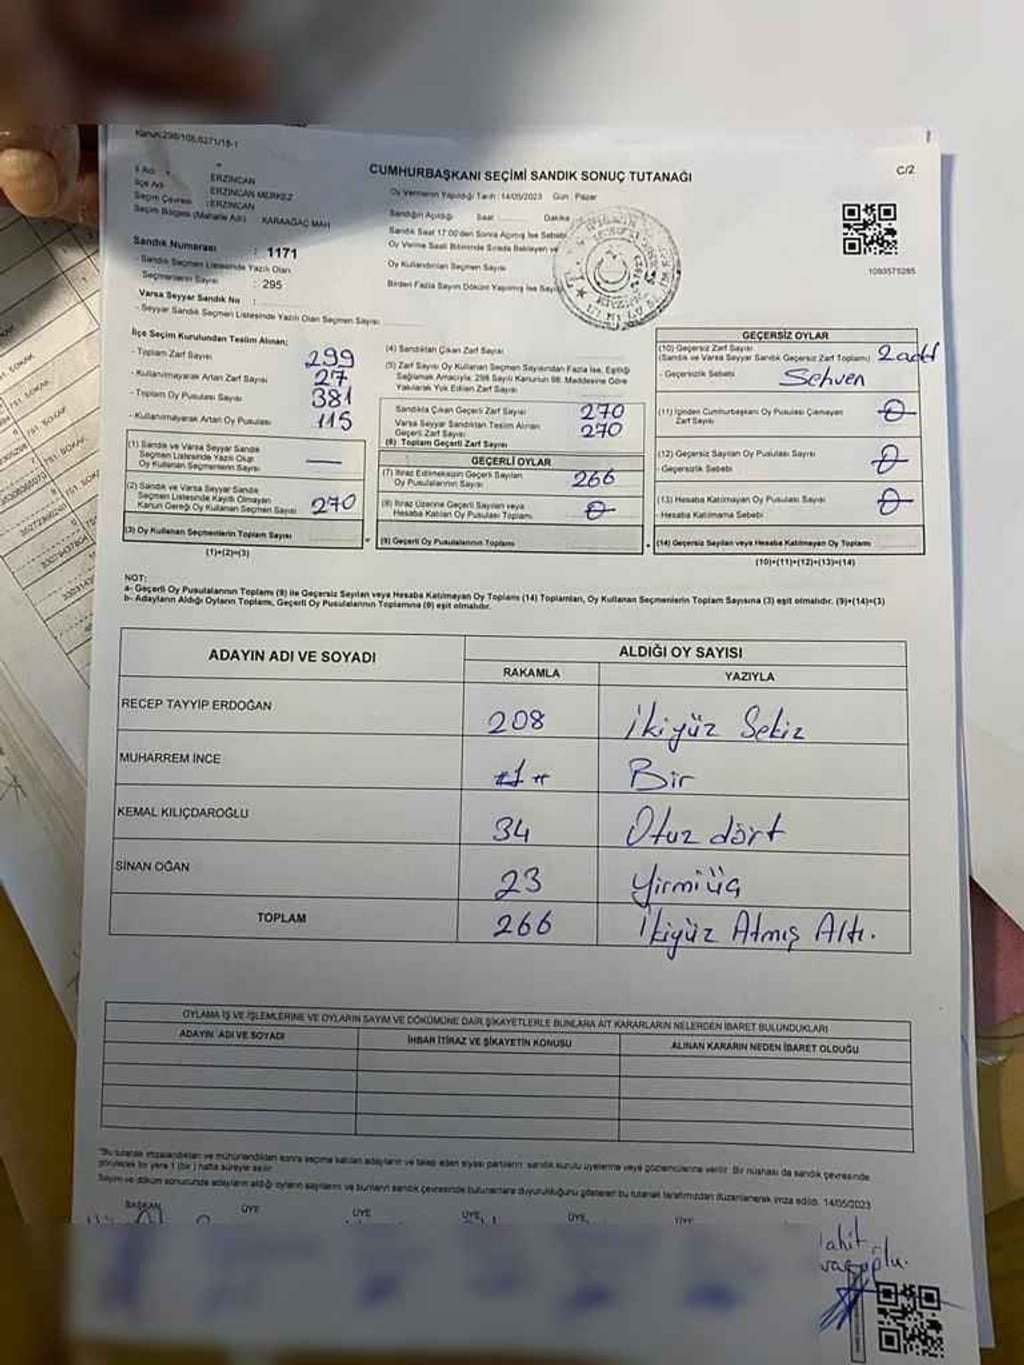 Kanun:298/105,6271/18-1
C/2
CUMHURBAŞKANI SEÇİMİ SANDIK SONUÇ TUTANAĞI
İl Adı : ERZİNCAN
İlçe Adı : ERZİNCAN MERKEZ
Seçim Çevresi : ERZİNCAN
Seçim Bölgesi (Mahalle Adı) : KARAAĞAÇ MAH
Sandık Numarası : 1171
- Sandık Seçmen Listesinde Yazılı Olan
Seçmenlerin Sayısı : 295
Varsa Seyyar Sandık No :
- Seyyar Sandık Seçmen Listesinde Yazılı Olan Seçmen Sayısı
Oy Vermenin Yapıldığı Tarih : 14/05/2023 Gün : Pazar
Sandığın Açıldığı Saat Dakika
Sandık Saat 17:00'den Sonra Açılmış İse Sebebi
Oy Verme Saati Bitiminde Sırada Bekleyen ve
Oy Kullandırılan Seçmen Sayısı
Birden Fazla Sayım Döküm Yapılmış İse Sayısı
1093575285
İlçe Seçim Kurulundan Teslim Alınan;
- Toplam Zarf Sayısı 299
- Kullanılmayarak Artan Zarf Sayısı 27
- Toplam Oy Pusulası Sayısı 381
- Kullanılmayarak Artan Oy Pusulası 115
(1) Sandık ve Varsa Seyyar Sandık
Seçmen Listesinde Yazılı Olup
Oy Kullanan Seçmenlerin Sayısı —
(2) Sandık ve Varsa Seyyar Sandık
Seçmen Listesinde Kayıtlı Olmayan
Kanun Gereği Oy Kullanan Seçmen Sayısı 270
(3) Oy Kullanan Seçmenlerin Toplam Sayısı
(1)+(2)=(3)
(4) Sandıktan Çıkan Zarf Sayısı
(5) Zarf Sayısı Oy Kullanan Seçmen Sayısından Fazla İse, Eşitliği
Sağlamak Amacıyla; 298 Sayılı Kanunun 98. Maddesine Göre
Yakılarak Yok Edilen Zarf Sayısı
Sandıkta Çıkan Geçerli Zarf Sayısı 270
Varsa Seyyar Sandıktan Teslim Alınan
Geçerli Zarf Sayısı 270
(6) Toplam Geçerli Zarf Sayısı
GEÇERLİ OYLAR
(7) İtiraz Edilmeksizin Geçerli Sayılan
Oy Pusulalarının Sayısı 266
(8) İtiraz Üzerine Geçerli Sayılan veya
Hesaba Katılan Oy Pusulası Toplamı 0
(9) Geçerli Oy Pusulalarının Toplamı
GEÇERSİZ OYLAR
(10) Geçersiz Zarf Sayısı
(Sandık ve Varsa Seyyar Sandık Geçersiz Zarf Toplamı) 2 adt
- Geçersizlik Sebebi Sehven
(11) İçinden Cumhurbaşkanı Oy Pusulası Çıkmayan
Zarf Sayısı 0
(12) Geçersiz Sayılan Oy Pusulası Sayısı
- Geçersizlik Sebebi 0
(13) Hesaba Katılmayan Oy Pusulası Sayısı
- Hesaba Katılmama Sebebi 0
(14) Geçersiz Sayılan veya Hesaba Katılmayan Oy Toplamı
(10)+(11)+(12)+(13)=(14)
NOT:
a- Geçerli Oy Pusulalarının Toplamı (9) ile Geçersiz Sayılan veya Hesaba Katılmayan Oy Toplamı (14) Toplamları, Oy Kullanan Seçmenlerin Toplam Sayısına (3) eşit olmalıdır. (9)+(14)=(3)
b- Adayların Aldığı Oyların Toplamı, Geçerli Oy Pusulalarının Toplamına (9) eşit olmalıdır.
ADAYIN ADI VE SOYADI
ALDIĞI OY SAYISI
RAKAMLA YAZIYLA
RECEP TAYYİP ERDOĞAN 208 İkiyüz Sekiz
MUHARREM İNCE 1 Bir
KEMAL KILIÇDAROĞLU 34 Otuz dört
SİNAN OĞAN 23 Yirmiüç
TOPLAM 266 İkiyüz Atmış Altı.
OYLAMA İŞ VE İŞLEMLERİNE VE OYLARIN SAYIM VE DÖKÜMÜNE DAİR ŞİKAYETLERLE BUNLARA AİT KARARLARIN NELERDEN İBARET BULUNDUKLARI
ADAYIN ADI VE SOYADI İHBAR İTİRAZ VE ŞİKAYETİN KONUSU ALINAN KARARIN NEDEN İBARET OLDUĞU
*Bu tutanak imzalandıktan ve mühürlendikten sonra seçime katılan adayların ve talep eden siyasi partilerin sandık kurulu üyelerine veya gözlemcilerine verilir. Bir nüshası da sandık çevresinde
görülecek bir yere 1 (bir) hafta süreyle asılır.
Sayım ve döküm sonucunda adayların aldığı oyların sayılarını ve bunların sandık çevresinde bulunanlara duyurulduğunu gösteren bu tutanak tarafımızdan düzenlenerek imza edildi. 14/05/2023
BAŞKAN ÜYE ÜYE ÜYE ÜYE ÜYE